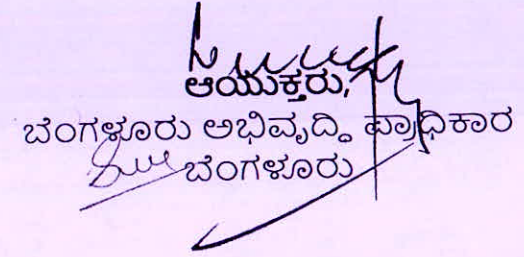 ಆಯುಕ್ತರು,
ಬೆಂಗಳೂರು ಅಭಿವೃದ್ಧಿ ಪ್ರಾಧಿಕಾರ
ಬೆಂಗಳೂರು